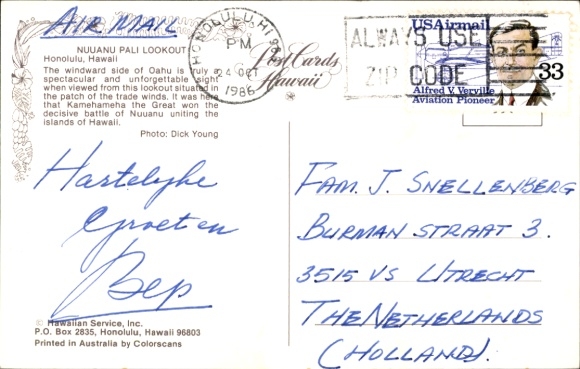 AIR MAIL
NUUANU PALI LOOKOUT
Honolulu, Hawaii
The windward side of Oahu is truly a
spectacular and unforgettable sight
when viewed from this lookout situated in
the patch of the trade winds. It was here
that Kamehameha the Great won the
decisive battle of Nuuanu uniting the
islands of Hawaii.
Photo: Dick Young
HONOLULU, HI
PM
24 OCT
1986
Post Cards
Hawaii
ALWAYS USE
ZIP CODE
USAirmail
33
Alfred V. Verville
Aviation Pioneer
Hartelyke
Groeten
Bep
FAM. J. SNELLENBERG
BURMAN STRAAT 3.
3515 VS UTRECHT
THE NETHERLANDS
(HOLLAND).
© Hawaiian Service, Inc.
P.O. Box 2835, Honolulu, Hawaii 96803
Printed in Australia by Colorscans